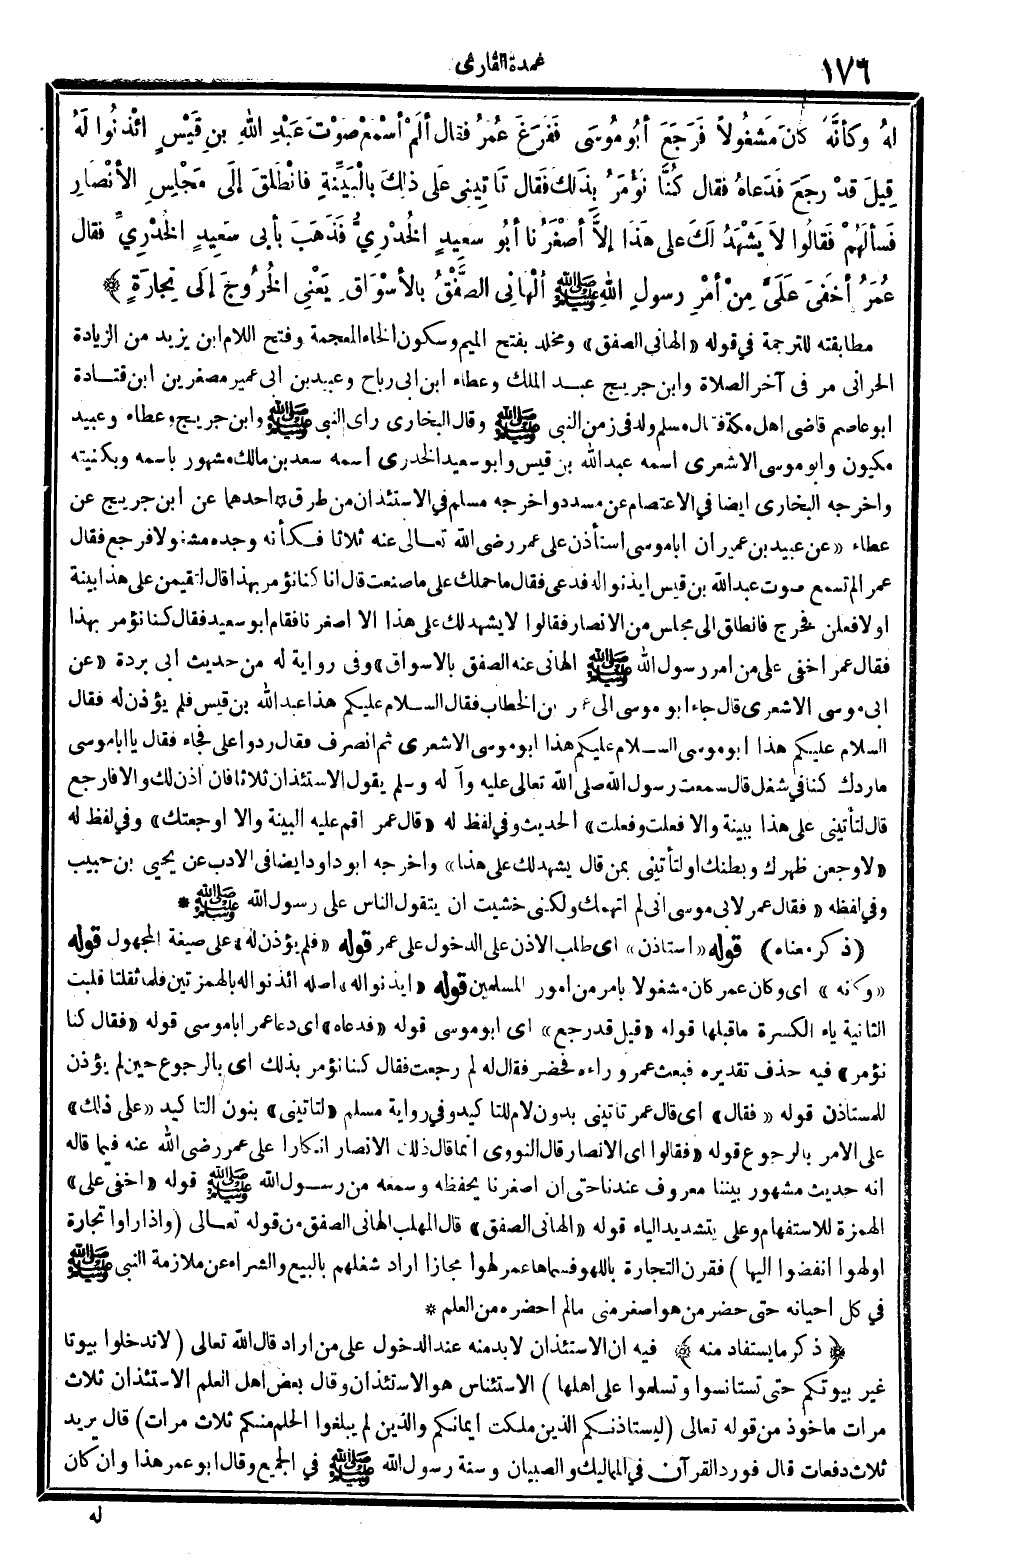 ١٧٦
عمدة القارئ
لهُ وكأنَّهُ كانَ مَشْغُولاً فَرَجَعَ أبُو مُوسَى فَفَرَغَ عُمَرُ فقال ألَمْ أسْمَعْ صَوْتَ عَبْدِ اللهِ بنِ قَيْسٍ ائْذَنُوا لَهُ
قِيلَ قدْ رجَعَ فَدَعاهُ فقال كُنَّا نُؤْمَرُ بِذَلكَ فَقال تَأتِينِى عَلى ذلِكَ بالْبَيِّنَةِ فانْطَلَقَ إلَى مَجْلِسِ الأنْصَارِ
فَسألَهُمْ فَقالُوا لاَ يَشْهَدُ لَكَ على هَذَا إلاَّ أصْغَرُنا أبُو سَعِيدٍ الخُدْرِيُّ فَذَهَبَ بأبى سَعِيدٍ الخُدْرِيِّ فقال
عُمَرُ أخَفىَ عَلَىَّ مِنْ أمْرِ رسولِ اللهِ ﷺ ألْهانِى الصَّفْقُ بالأسْوَاقِ يَعْنِى الخُرُوجَ إلَى تِجارَةٍ ﴾
مطابقته للترجمة في قوله «الهانى الصفق» ومخلد بفتح الميم وسكون الخاء المعجمة وفتح اللام ابن يزيد من الزيادة
الحرانى مر فى آخر الصلاة وابن جريج عبد الملك وعطاء ابن ابى رباح وعبيد بن ابى عمير مصغرين ابن قتادة
ابو عاصم قاضى اهل مكة قال مسلم ولد فى زمن النبى ﷺ وقال البخارى راى النبى ﷺ وابن جريج وعطاء وعبيد
مكيون وابو موسى الاشعرى اسمه عبدالله بن قيس وابو سعيد الخدرى اسمه سعد بن مالك مشهور باسمه وبكنيته
واخرجه البخارى ايضا في الاعتصام عن مسدد واخرجه مسلم في الاستئذان من طرق * احدها عن ابن جريج عن
عطاء «عن عبيد بن عمير ان اباموسى استأذن على عمر رضى الله تعالى عنه ثلاثا فكأنه وجده مشغولا فرجع فقال
عمر الم تسمع صوت عبدالله بن قيس ايذنوا له فدعى فقال ما حملك على ما صنعت قال انا كنا نؤمر بهذا قال لتقيمن على هذا بينة
اولافعلن فخرج فانطلق الى مجلس من الانصار فقالوا لا يشهد لك على هذا الا اصغرنا فقام ابو سعيد فقال كنا نؤمر بهذا
فقال عمر اخفى على من امر رسول الله ﷺ الهانى عنه الصفق بالاسواق» وفى رواية له من حديث ابى بردة «عن
ابى موسى الاشعرى قال جاء ابو موسى الى عمر بن الخطاب فقال السلام عليكم هذا عبدالله بن قيس فلم يؤذن له فقال
السلام عليكم هذا ابو موسى السلام عليكم هذا ابو موسى الاشعرى ثم انصرف فقال ردوا على فجاء فقال يا اباموسى
ماردك كنا في شغل قال سمعت رسول الله صلى الله تعالى عليه وآله وسلم يقول الاستئذان ثلاثا فان اذن لك والا فارجع
قال لتأتينى على هذا ببينة والا فعلت وفعلت» الحديث وفي لفظ له «قال عمر اقم عليه البينة والا اوجعتك» وفي لفظ له
«لاوجعن ظهرك وبطنك اولتأتينى بمن قال يشهد لك على هذا» واخرجه ابو داود ايضا فى الادب عن يحيى بن حبيب
وفى لفظه «فقال عمر لابى موسى انى لم اتهمك ولكنى خشيت ان يتقول الناس على رسول الله ﷺ *
(ذكر معناه) قوله «استاذن» اى طلب الاذن على الدخول على عمر قوله «فلم يؤذن له» على صيغة المجهول قوله
«وكانه» اى وكان عمر كان مشغولا بامر من امور المسلمين قوله «ايذنوا له» اصله ائذنوا له بالهمزتين فلما ثقلتا قلبت
الثانية ياء لكسرة ماقبلها قوله «قيل قد رجع» اى ابو موسى قوله «فدعاه» اى دعا عمر اباموسى قوله «فقال كنا
نؤمر» فيه حذف تقديره فبعث عمر وراءه فحضر فقال له لم رجعت فقال كنا نؤمر بذلك اى بالرجوع حين لم يؤذن
للمستاذن قوله «فقال» اى قال عمر تاتينى بدون لام للتاكيد وفي رواية مسلم «لتاتينى» بنون التاكيد «على ذلك»
على الامر بالرجوع قوله «فقالوا اى الانصار قال النووى انما قال ذلك الانصار انكارا على عمر رضى الله عنه فيما قاله
انه حديث مشهور بيننا معروف عندنا حتى ان اصغرنا يحفظه وسمعه من رسول الله ﷺ قوله «اخفى على»
الهمزة للاستفهام وعلى بتشديد الياء قوله «الهانى الصفق» قال المهلب الهانى الصفق من قوله تعالى (واذا راوا تجارة
اولهوا انفضوا اليها) فقرن التجارة باللهو فسماها عمر لهوا مجازا اراد شغلهم بالبيع والشراء عن ملازمة النبى ﷺ
في كل احيانه حتى حضر من هو اصغر منى مالم احضره من العلم *
﴿ذكر ما يستفاد منه﴾ فيه ان الاستئذان لا بد منه عند الدخول على من اراد قال الله تعالى (لا تدخلوا بيوتا
غير بيوتكم حتى تستانسوا وتسلموا على اهلها) الاستئناس هو الاستئذان وقال بعض اهل العلم الاستئذان ثلاث
مرات ماخوذ من قوله تعالى (ليستاذنكم الذين ملكت ايمانكم والذين لم يبلغوا الحلم منكم ثلاث مرات) قال يريد
ثلاث دفعات قال فورد القرآن في المماليك والصبيان وسنة رسول الله ﷺ في الجميع وقال ابو عمر هذا وان كان
له